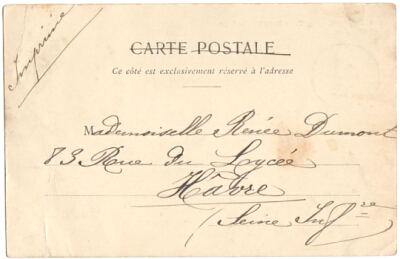 Imprimé
CARTE POSTALE
Ce côté est exclusivement réservé à l'adresse
Mademoiselle Renée Dumont
83 Rue du Lycée
Hâvre
Seine Infre